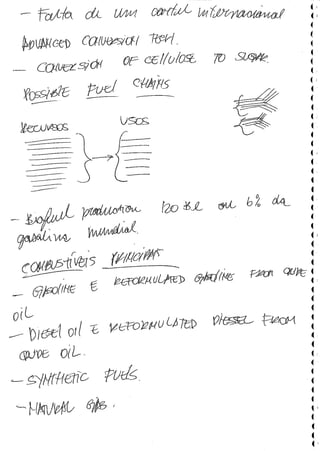 - Falta de um cartel internacional
ADVANCED CONVERSION TECH.
- CONVERSION OF CELLULOSE TO SUGAR.
POSSIBLE FUEL CHAINS
RECURSOS USOS
- Biofuel production 120 Bl ou 6% da
gasolina mundial
COMBUSTÍVEIS PRINCIPAIS
- GASOLINE E REFORMULATED GASOLINE FROM CRUDE
OIL
- DIESEL OIL E REFORMULATED DIESSEL FROM
CRUDE OIL.
- SYNTHETIC FUELS.
- NATURAL GAS.